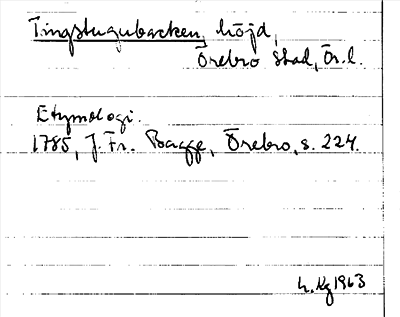 Tingstugubacken, höjd,
Örebro stad, Ör. l.
Etymologi.
1785, J. Fr. Bagge, Örebro, s. 224.
h. Kg 1963